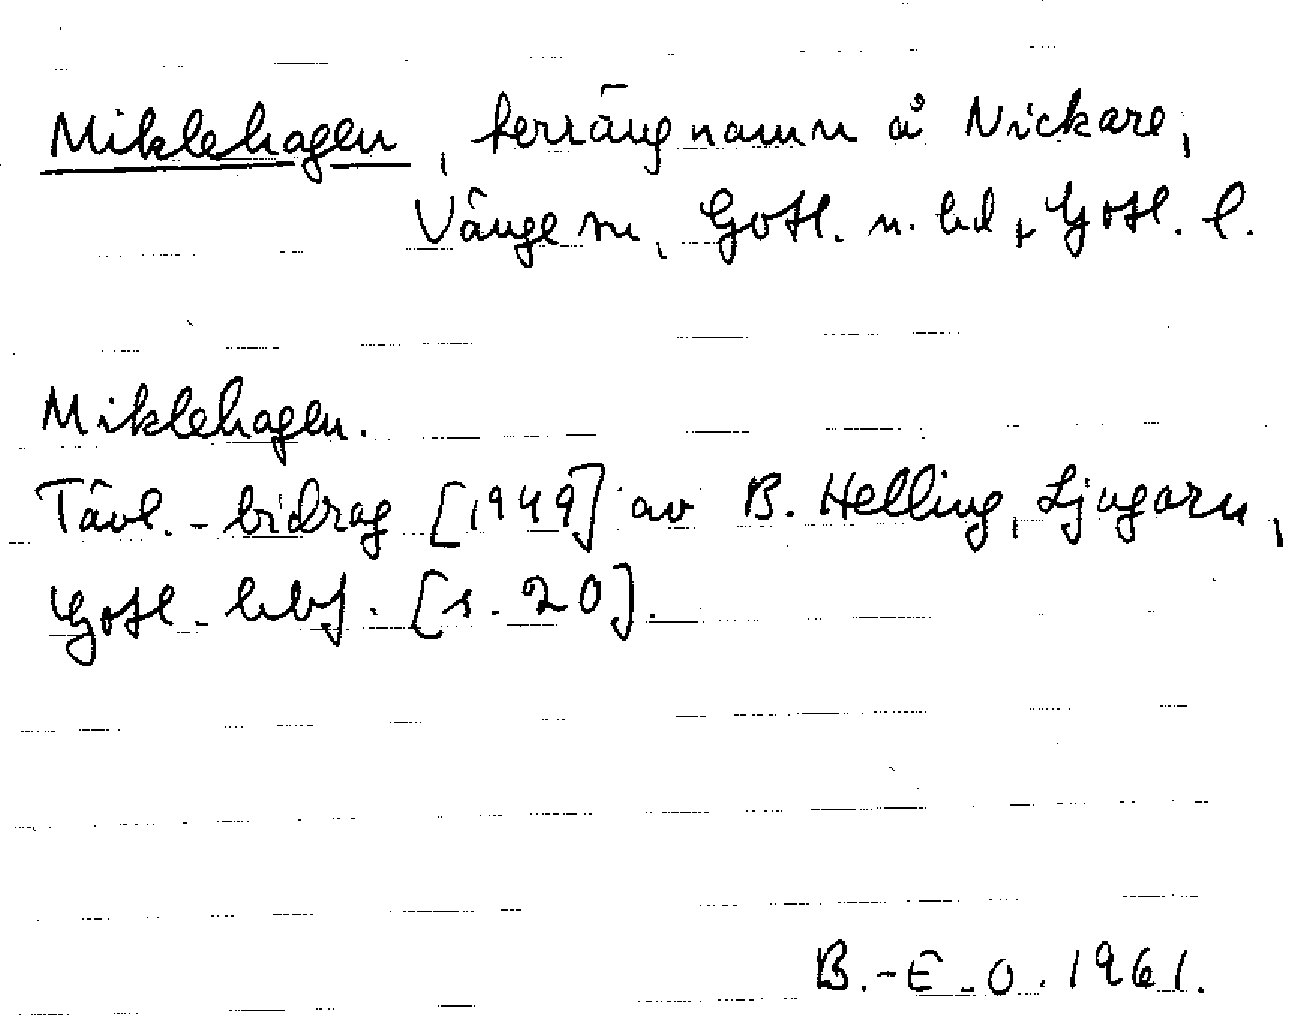 Miklehagen, terrängnamn å Nickare,
Vänge sn, Gotl. n. hd, Gotl. l.
Miklehagen.
Tävl.-bidrag [1949] av B. Helling, Ljugarn,
Gotl. hbf. [s. 20].
B.-E. O. 1961.